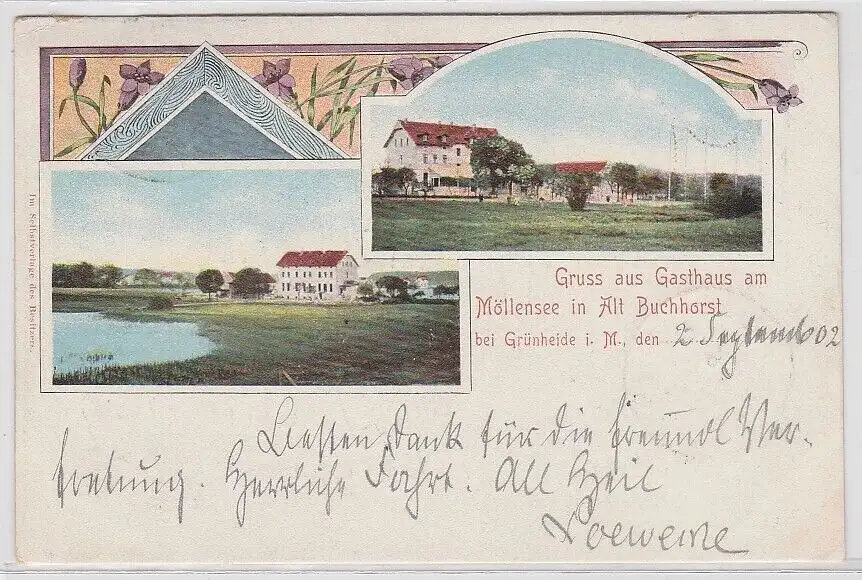 Im Selbstverlage des Besitzers.
Gruss aus Gasthaus am
Möllensee in Alt Buchhorst
bei Grünheide i. M., den 2 September 02
Besten Dank für die freundl Ver-
tretung. Herrliche Fahrt. All Heil
Loewene